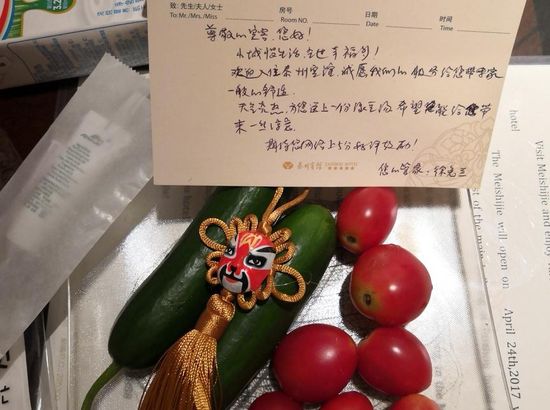 3.2
致: 先生/夫人/女士
To: Mr./Mrs./Miss
房号
Room NO.
日期
Date
时间
Time
尊敬的宾客,您好!
小城慢生活,在世幸福多!
欢迎入住泰州宾馆,诚愿我们的服务给您带来家
一般的舒适。
天气炎热,为您送上一份
希望能给您带
来一些清凉。
期待您网络上5分好评鼓励!
您的管家:徐
泰州宾馆
TAIZHOU HOTEL
Visit Meishijie
hotel
The Meishijie will open on April 24th,2017